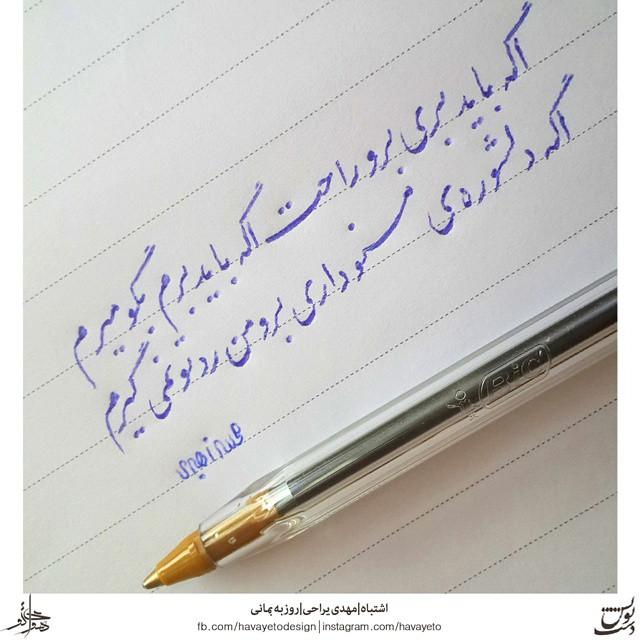 اگه باید بری برو راحت اگه باید برم بگو میرم
اگه دلشوره‌ی منو داری برو من ردتو نمی گیرم
BIC
اشتباه|مهدی یراحی|روزبه بمانی
fb.com/havayetodesign|instagram.com/havayeto